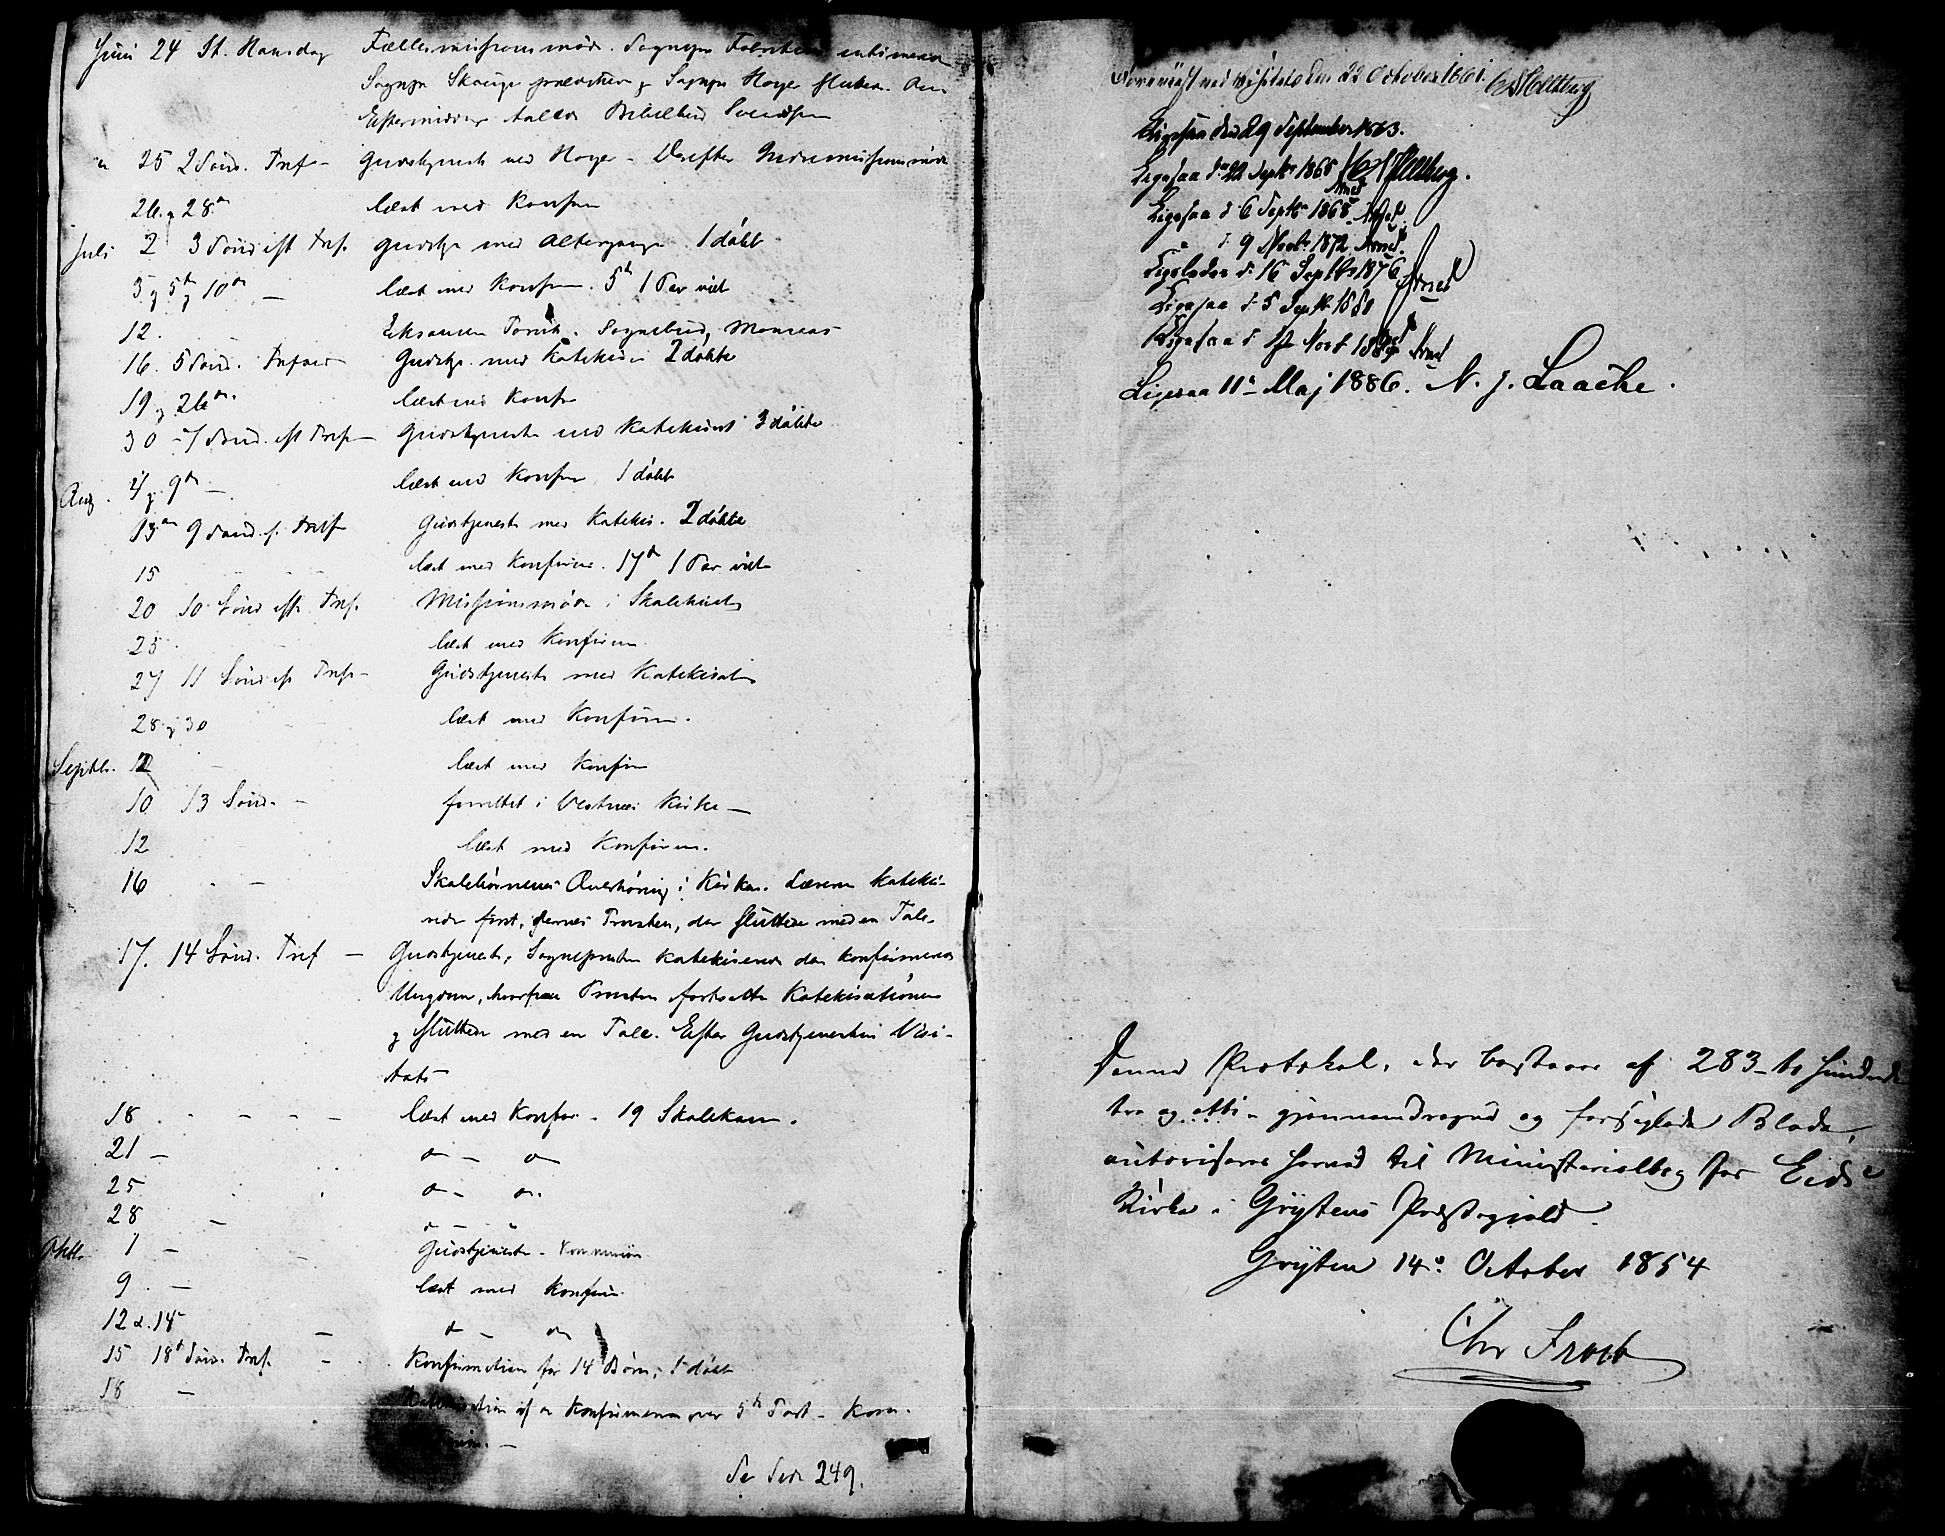 Juni 24 St. Hansdag Fællesmissionsmöde. Sognepr
Sognepr Skauge prædiker og Sognepr Hoyer slutter. Om
Eftermiddag talte Bibelbud Svendsen
" 25 2 Sönd. Tref - Gudstjeneste ved Hoyer - Derefter Indremissionsmöde
26 og 28de læst med Konfirm
Juli 2 3 Sönd eft Tref. Gudstje med Altergang 1 döbt
5te og 10de - læst med Konfirm. 5te 1 Par viet
12. Eksamen Sognebud,
16. 5 Sönd. Trefold Gudstje. med Katekis 2 döbte
19 og 26de læst med Konfir
30 - 7 Sönd. eft Tref - Gudstjeneste med Katekisat 3 döbte
Aug. og 9de - læst med Konfirm 1 döbt
13de 9 Sönd. e. Tref Gudstjeneste med Katekis. 2 döbte
15 læst med Konfirm. 17de 1 Par viet
20 10 Sönd eft. Tref. Missionsmöde i Skolehuset
25 læst med Konfirm
27 11 Sönd eft Tref - Gudstjeneste med Katekisat
28 og 30 læst med Konfirm.
Septbr. 2 - læst med Konfir
10 13 Sönd. - forrettet i Vestnes Kirke -
12 læst med Konfirm.
16 - Skolebörnenes Overhöring i Kirken. Læreren kateki-
serede först, dernæst Provsten, der sluttede med en Tale.
17. 14 Sönd. Tref - Gudstjeneste, Sognepresten katekiserede den konfirmerede
Ungdom, hvorpaa Provsten fortsatte Katekisationen
og sluttede med en Tale. Efter Gudstjenesten Visi-
tats
18 - - - læst med Konfir - 19 Skolekom.
21 - do - do
25 do - do.
28 - do - "
Oktbr 1 - Gudstjeneste - Kommunion
9 - læst med Konfirm.
12 & 14 - do - do
15 18de Sönd. Tref. - Konfirmation for 14 Börn, 1 döbt
18 - Katekisation af de Konfirmerede over 5te Part - Kom-
Se Side 249.
Foreviist ved Visitats den 22 October 1861. Hellberg
Ligesaa den 29 September 1863.
Ligesaa d. 22 Septbr 1865 Hellberg.
Ligesaa d. 6 Septbr 1868. Arnet
" d. 9 Novbr. 1872 Arnet.
Ligeledes d. 16 Septbr 1876 Arnet
Ligesaa d. 5 Septb. 1880
Ligesaa d. Novb. Arnet
Ligesaa 11te Maj 1886. N. J. Laache.
Denne Protokol, der bestaaer af 283 - to Hundrede
tre og otti - gjennemdragne og forseglede Blade,
autoriseres herved til Ministerialbog for Eids
Kirke i Gryten Præstegjeld.
Gryten 14de October 1854
Chr Frost